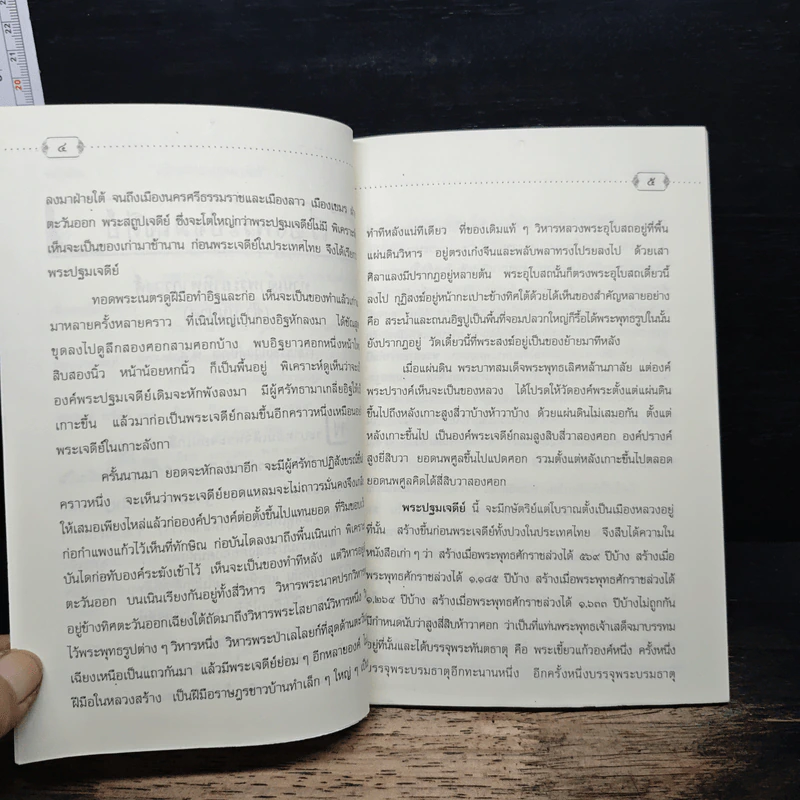 ๔
ลงมาฝ่ายใต้ จนถึงเมืองนครศรีธรรมราชและเมืองลาว เมืองเขมร
ตะวันออก พระสถูปเจดีย์ ซึ่งจะโตใหญ่กว่าพระปฐมเจดีย์ไม่มี พิเคราะห์
เห็นจะเป็นของเก่ามาช้านาน ก่อนพระเจดีย์ในประเทศไทย จึงได้เรียก
พระปฐมเจดีย์
ทอดพระเนตรดูฝีมือทำอิฐและก่อ เห็นจะเป็นของทำแล้วเก่า
มาหลายครั้งหลายคราว ที่เนินใหญ่เป็นกองอิฐหักลงมา ได้ขัณ
ขุดลงไปดูลึกสองศอกสามศอกบ้าง พบอิฐยาวศอกหนึ่งหน้าใหญ่
สิบสองนิ้ว หน้าน้อยหกนิ้ว ก็เป็นพื้นอยู่ พิเคราะห์ดูเห็นว่าจะ
องค์พระปฐมเจดีย์เดิมจะหักพังลงมา มีผู้ศรัทธามาเกลี่ยอิฐให้
เกาะขึ้น แล้วมาก่อเป็นพระเจดีย์กลมขึ้นอีกคราวหนึ่งเหมือน
พระเจดีย์ในเกาะลังกา
ครั้นนานมา ยอดจะหักลงมาอีก จะมีผู้ศรัทธาปฏิสังขรณ์
คราวหนึ่ง จะเห็นว่าพระเจดีย์ยอดแหลมจะไม่ถาวรมั่นคงจึง
ให้เสมอเพียงไหล่แล้วก่อองค์ปรางค์ต่อตั้งขึ้นไปแทนยอด ที่ริมขอบ
ก่อกำแพงแก้วไว้เห็นที่ทักษิณ ก่อบันไดลงมาถึงพื้นเนินเก่า พิเคราะห์
บันไดก่อทับองค์ระฆังเข้าไว้ เห็นจะเป็นของทำทีหลัง แต่วิหารอยู่
ตะวันออก บนเนินเรียงกันอยู่ทั้งสี่วิหาร วิหารพระนาคปรกวิหาร
อยู่ข้างทิศตะวันออกเฉียงใต้ถัดมาถึงวิหารพระไสยาสน์วิหารหนึ่ง
ไว้พระพุทธรูปต่าง ๆ วิหารหนึ่ง วิหารพระป่าเลไลยก์ที่สุดด้านตะวัน
เฉียงเหนือเป็นแถวกันมา แล้วมีพระเจดีย์ย่อม ๆ อีกหลายองค์
ฝีมือในหลวงสร้าง เป็นฝีมือราษฎรชาวบ้านทำเล็ก ๆ ใหญ่ ๆ
๕
ทำทีหลังแน่ทีเดียว ที่ของเดิมแท้ ๆ วิหารหลวงพระอุโบสถอยู่ที่พื้น
แผ่นดินวิหาร อยู่ตรงเก๋งจีนและพลับพลาทรงโปรยลงไป ด้วยเสา
ศิลาแลงมีปรากฏอยู่หลายต้น พระอุโบสถนั้นก็ตรงพระอุโบสถเดี๋ยวนี้
ลงไป กุฏิสงฆ์อยู่หน้ากะเปาะข้างทิศใต้ด้วยได้เห็นของสำคัญหลายอย่าง
คือ สระน้ำและถนนอิฐปูเป็นพื้นที่จอมปลวกใหญ่ก็รื้อได้พระพุทธรูปในนั้น
ยังปรากฏอยู่ วัดเดี๋ยวนี้ที่พระสงฆ์อยู่เป็นของย้ายมาทีหลัง
เมื่อแผ่นดิน พระบาทสมเด็จพระพุทธเลิศหล้านภาลัย แต่องค์
พระปรางค์เห็นจะเป็นของหลวง ได้โปรดให้วัดองค์พระตั้งแต่แผ่นดิน
ขึ้นไปถึงหลังเกาะสูงสี่วาบ้างห้าวาบ้าง ด้วยแผ่นดินไม่เสมอกัน ตั้งแต่
หลังเกาะขึ้นไป เป็นองค์พระเจดีย์กลมสูงสิบสี่วาสองศอก องค์ปรางค์
สูงยี่สิบวา ยอดนพศูลขึ้นไปแปดศอก รวมตั้งแต่หลังเกาะขึ้นไปตลอด
ยอดนพศูลคิดได้สี่สิบวาสองศอก
พระปฐมเจดีย์ นี้ จะมีกษัตริย์แต่โบราณตั้งเป็นเมืองหลวงอยู่
ที่นั้น สร้างขึ้นก่อนพระเจดีย์ทั้งปวงในประเทศไทย จึงสืบได้ความใน
หนังสือเก่า ๆ ว่า สร้างเมื่อพระพุทธศักราชล่วงได้ ๕๖๙ ปีบ้าง สร้างเมื่อ
พระพุทธศักราชล่วงได้ ๑,๑๘๕ ปีบ้าง สร้างเมื่อพระพุทธศักราชล่วงได้
๑,๒๖๔ ปีบ้าง สร้างเมื่อพระพุทธศักราชล่วงได้ ๑,๖๓๓ ปีบ้างไม่ถูกกัน
มีกำหนดนับว่าสูงสี่สิบห้าวาศอก ว่าเป็นที่แท่นพระพุทธเจ้าเสด็จมาบรรทม
อยู่ที่นั้นและได้บรรจุพระทันตธาตุ คือ พระเขี้ยวแก้วองค์หนึ่ง ครั้งหนึ่ง
บรรจุพระบรมธาตุอีกทะนานหนึ่ง อีกครั้งหนึ่งบรรจุพระบรมธาตุ
20
21
22